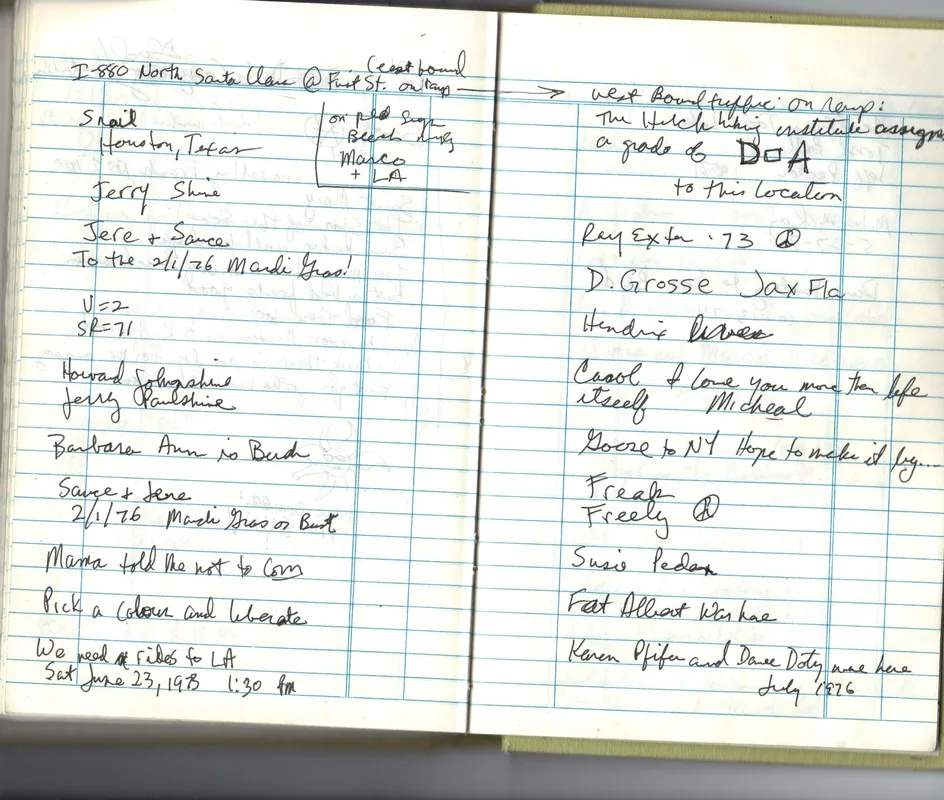 I-880 North Santa Clara @ First St. on ramp
(east bound
Snail
Houston, Texas
on
Beech
Marco
+ LA
Jerry Shine
Jere + Sauce
To the 2/1/76 Mardi Gras!
U=2
SR=71
Howard Johnshine
Jerry Paulshine
Barbara Ann is Bush
Sauce + Jere
2/1/76 Mardi Gras or Bust
Mama told me not to Com
Pick a colour and liberate
We need rides to LA
Sat June 23, 1973 1:30 Pm
West Bound traffic on ramp:
The Hitchhiking institute assigns
a grade of D O A
to this Location
Ray Exter '73
D. Grosse Jax Fla
Hendrix
Carol I love you more then life
itself Micheal
Goose to NY Hope to make it by...
Freak
Freely
Susie
Fat Albert Was here
Karen Pfifer and Dave Doty were here
July 1976